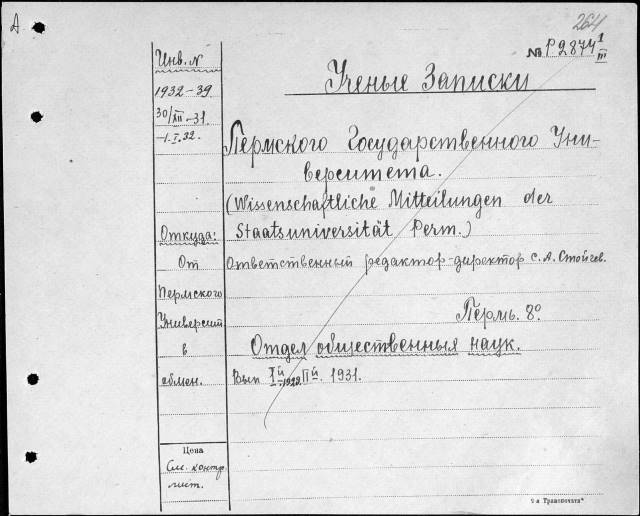 А
264
№ P2874 1/III
Ученые Записки
Пермского Государственного Уни-
верситета.
(Wissenschaftliche Mitteilungen der
Staatsuniversität Perm.)
Ответственный редактор-директор С.А. Стойчев.
Пермь. 8º
Отдел общественных наук.
Вып Iй 1929. IIй. 1931.
Инв. N
1932-39
30/XII-31.
-1.I.32.
Откуда:
От
Пермского
Университ
в
обмен.
Цена
См. контр.
лист.